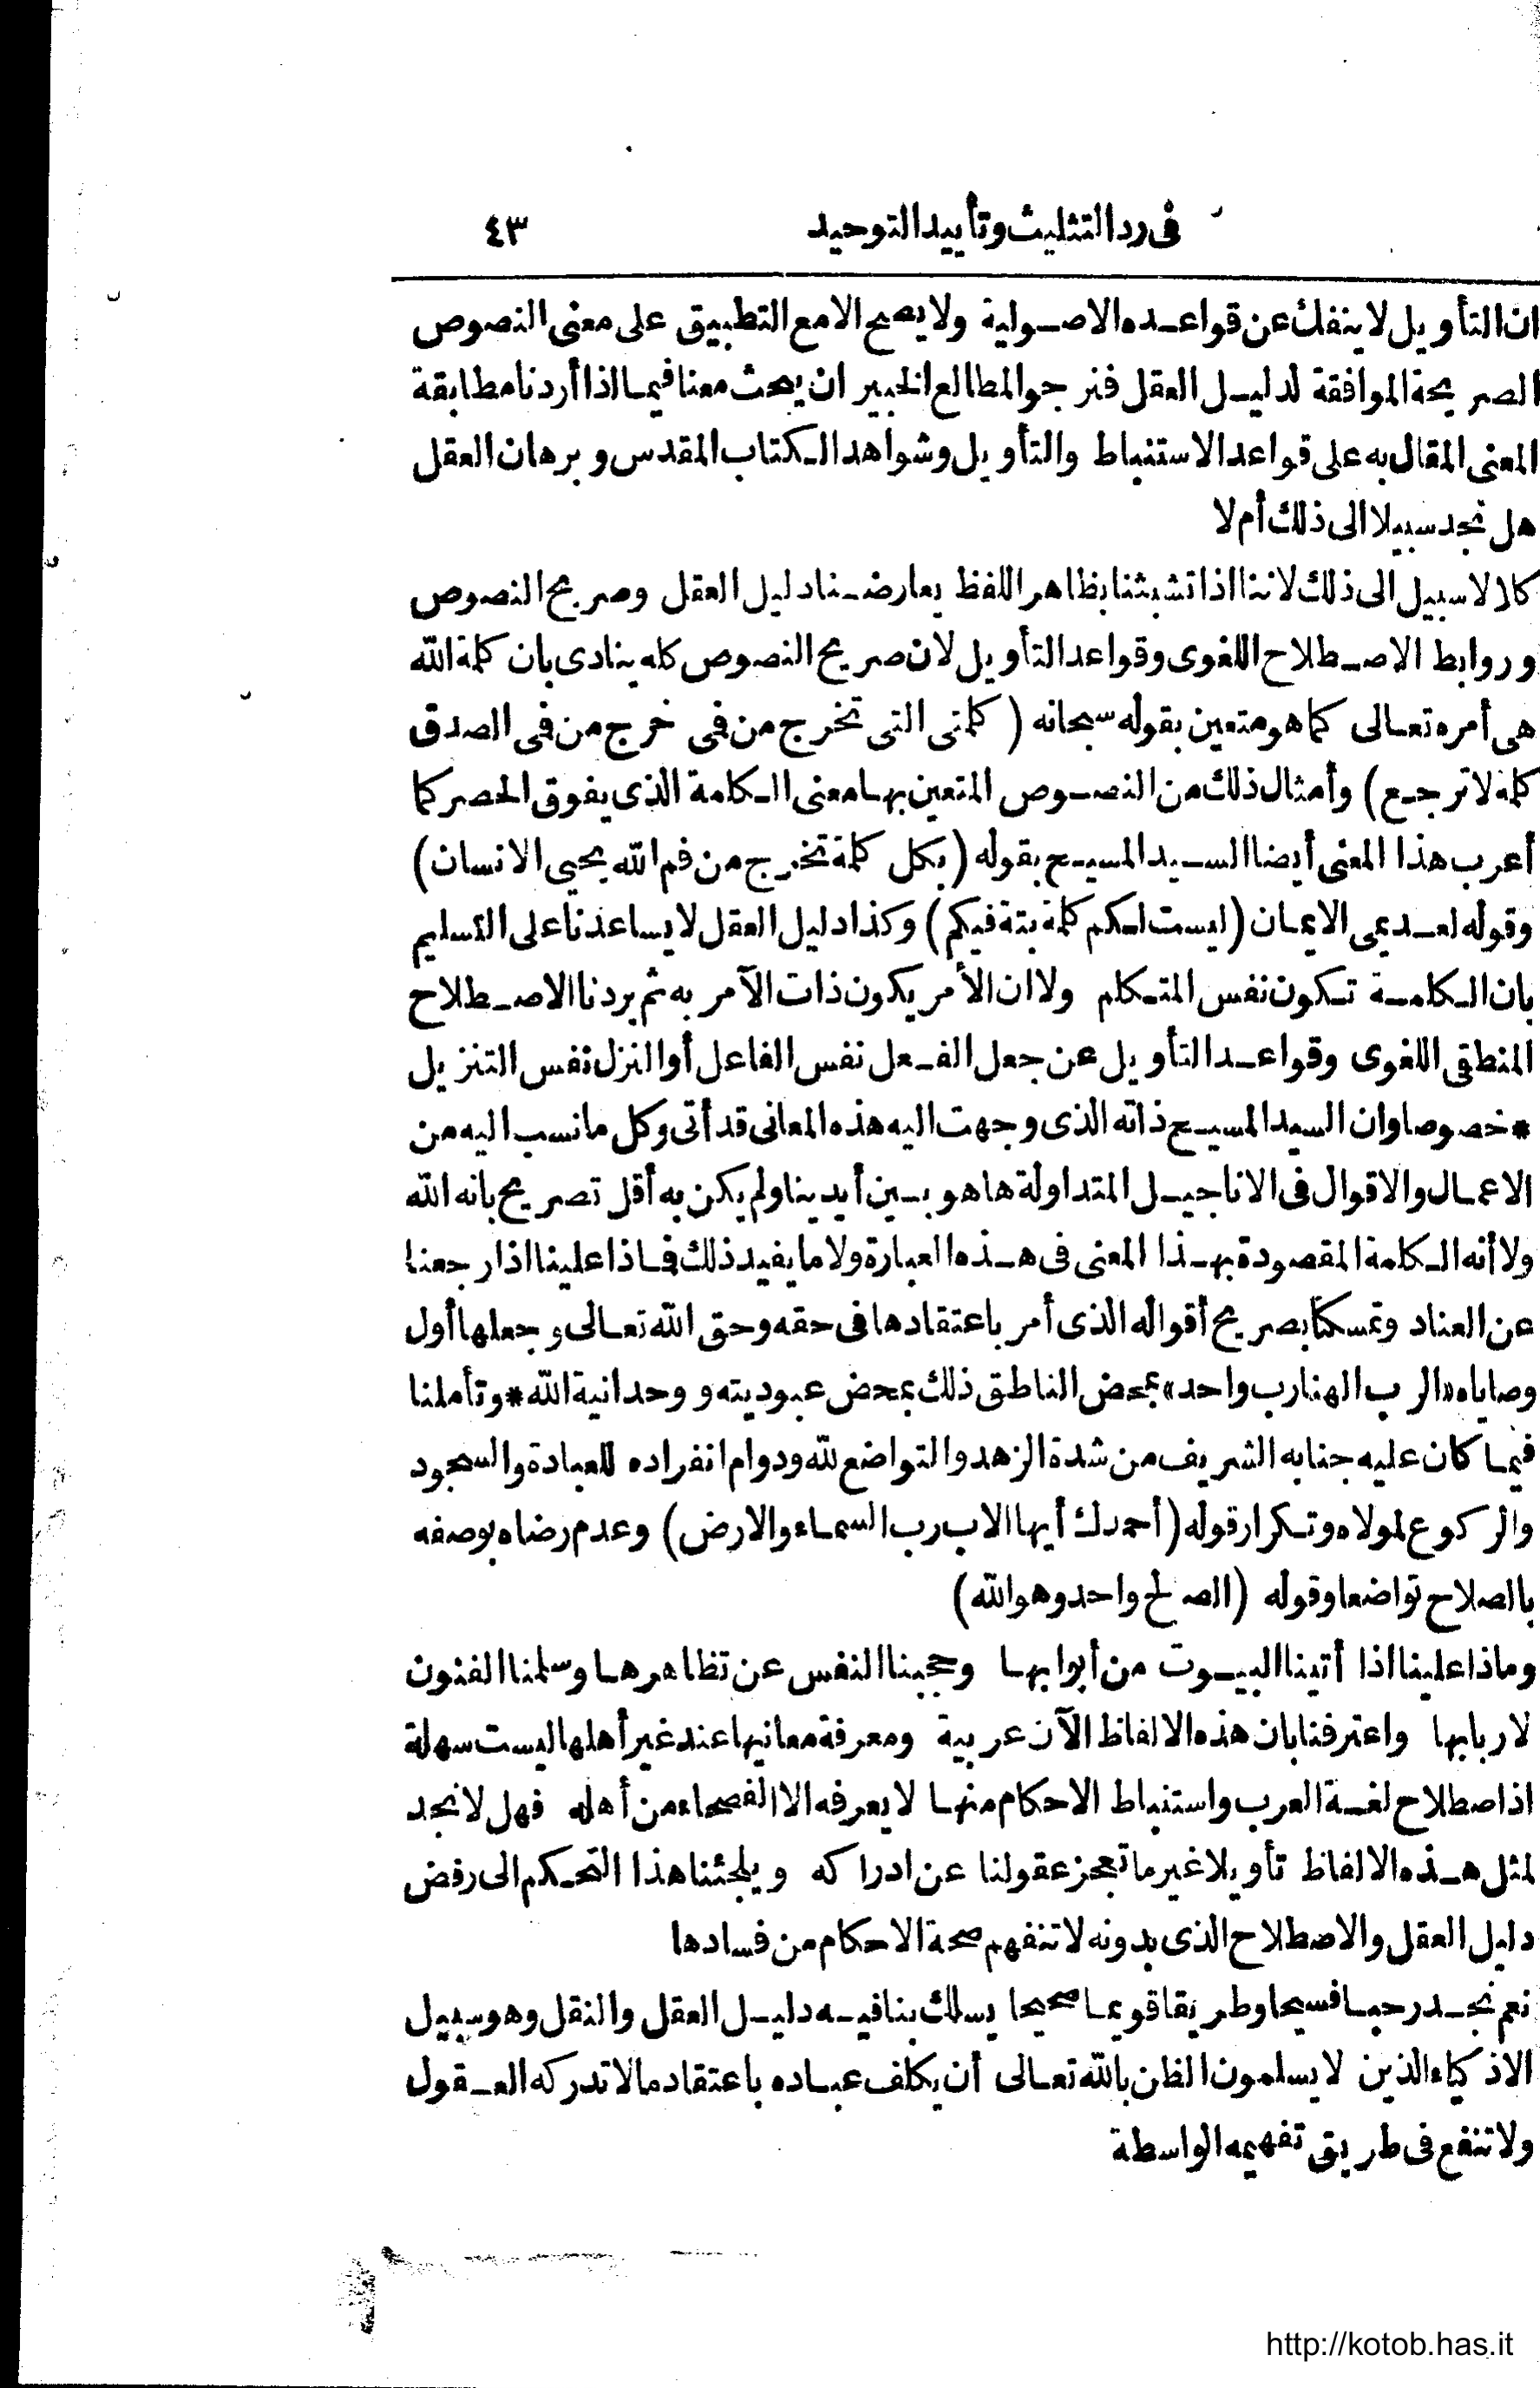 فى رد التثليث وتأييد التوحيد ٤٣
ان التأويل لا ينفك عن قواعده الاصولية ولا يصح الا مع التطبيق على معنى النصوص
الصريحة الموافقة لدليل العقل فنرجو المطالع الخبير ان يبحث معنا فيما اذا أردنا مطابقة
المعنى المقال به على قواعد الاستنباط والتأويل وشواهد الكتاب المقدس وبرهان العقل
هل نجد سبيلا الى ذلك أم لا
كلا لا سبيل الى ذلك لاننا اذا تشبثنا بظاهر اللفظ يعارضنا دليل العقل وصريح النصوص
وروابط الاصطلاح اللغوى وقواعد التأويل لان صريح النصوص كله ينادى بان كلمة الله
هى أمره تعالى كما هو متعين بقوله سبحانه (كلمتى التى تخرج من فى خرج من فى الصدق
كلمة لا ترجع) وأمثال ذلك من النصوص المتعين بها معنى الكلمة الذى يفوق الحصر كما
أعرب هذا المعنى أيضا السيد المسيح بقوله (بكل كلمة تخرج من فم الله يحيى الانسان)
وقوله لعديمى الايمان (ليست لكم كلمة بتة فيكم) وكذا دليل العقل لا يساعدنا على التسليم
بان الكلمة تكون نفس المتكلم ولا ان الأمر يكون ذات الآمر به ثم يردنا الاصطلاح
المنطقى اللغوى وقواعد التأويل عن جعل الفعل نفس الفاعل أو المنزل نفس التنزيل
* خصوصا وان السيد المسيح ذاته الذى وجهت اليه هذه المعانى قد أتى وكل ما نسب اليه من
الاعمال والاقوال فى الاناجيل المتداولة ها هو بين أيدينا ولم يكن به أقل تصريح بانه الله
ولا أنه الكلمة المقصودة بهذا المعنى فى هذه العبارة ولا ما يفيد ذلك فماذا علينا اذا رجعنا
عن العناد وتمسكنا بصريح أقواله الذى أمر باعتقادها فى حقه وحق الله تعالى وجعلها أول
وصاياه «الرب الهنا رب واحد» بمحض الناطق ذلك بمحض عبوديته ووحدانية الله * وتأملنا
فيما كان عليه جنابه الشريف من شدة الزهد والتواضع لله ودوام انفراده للعبادة والسجود
والركوع لمولاه وتكرار قوله (أحمدك أيها الاب رب السماء والارض) وعدم رضاه بوصفه
بالصلاح تواضعا وقوله (الصالح واحد وهو الله)
وماذا علينا اذا أتينا البيوت من أبوابها وحجبنا النفس عن تظاهرها وسلمنا الفنون
لاربابها واعترفنا بان هذه الالفاظ الآن عربية ومعرفة معانيها عند غير أهلها ليست سهلة
اذ اصطلاح لغة العرب واستنباط الاحكام منها لا يعرفه الا الفصحاء من أهله فهل لا نجد
لمثل هذه الالفاظ تأويلا غير ما تعجز عقولنا عن ادراكه ويلجئنا هذا التحكم الى رفض
دليل العقل والاصطلاح الذى بدونه لا تنفهم صحة الاحكام من فسادها
نعم نجد رحبا فسيحا وطريقا قويما صحيحا يسلك بنا فيه دليل العقل والنقل وهو سبيل
الاذكياء الذين لا يسلمون الظن بالله تعالى أن يكلف عباده باعتقاد ما لا تدركه العقول
ولا تنفع فى طريق تفهيمه الواسطة
http://kotob.has.it